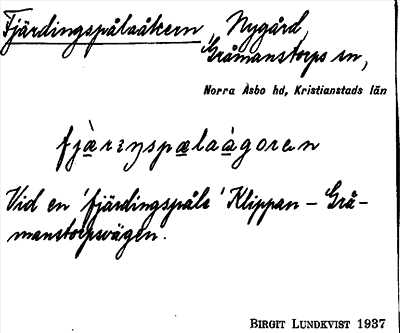 Fjärdingspålaåkern Nygård,
Gråmanstorps sn,
Norra Åsbo hd, Kristianstads län
fjàrɪŋspælaàgoren
Vid en 'fjärdingspåle' Klippan – Grå-
manstorpsvägen.
BIRGIT LUNDKVIST 1937